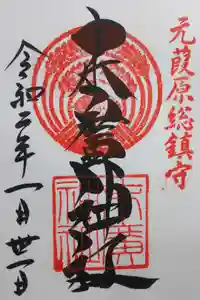 元葭原総鎮守
末廣神社
令和二年一月丗一日